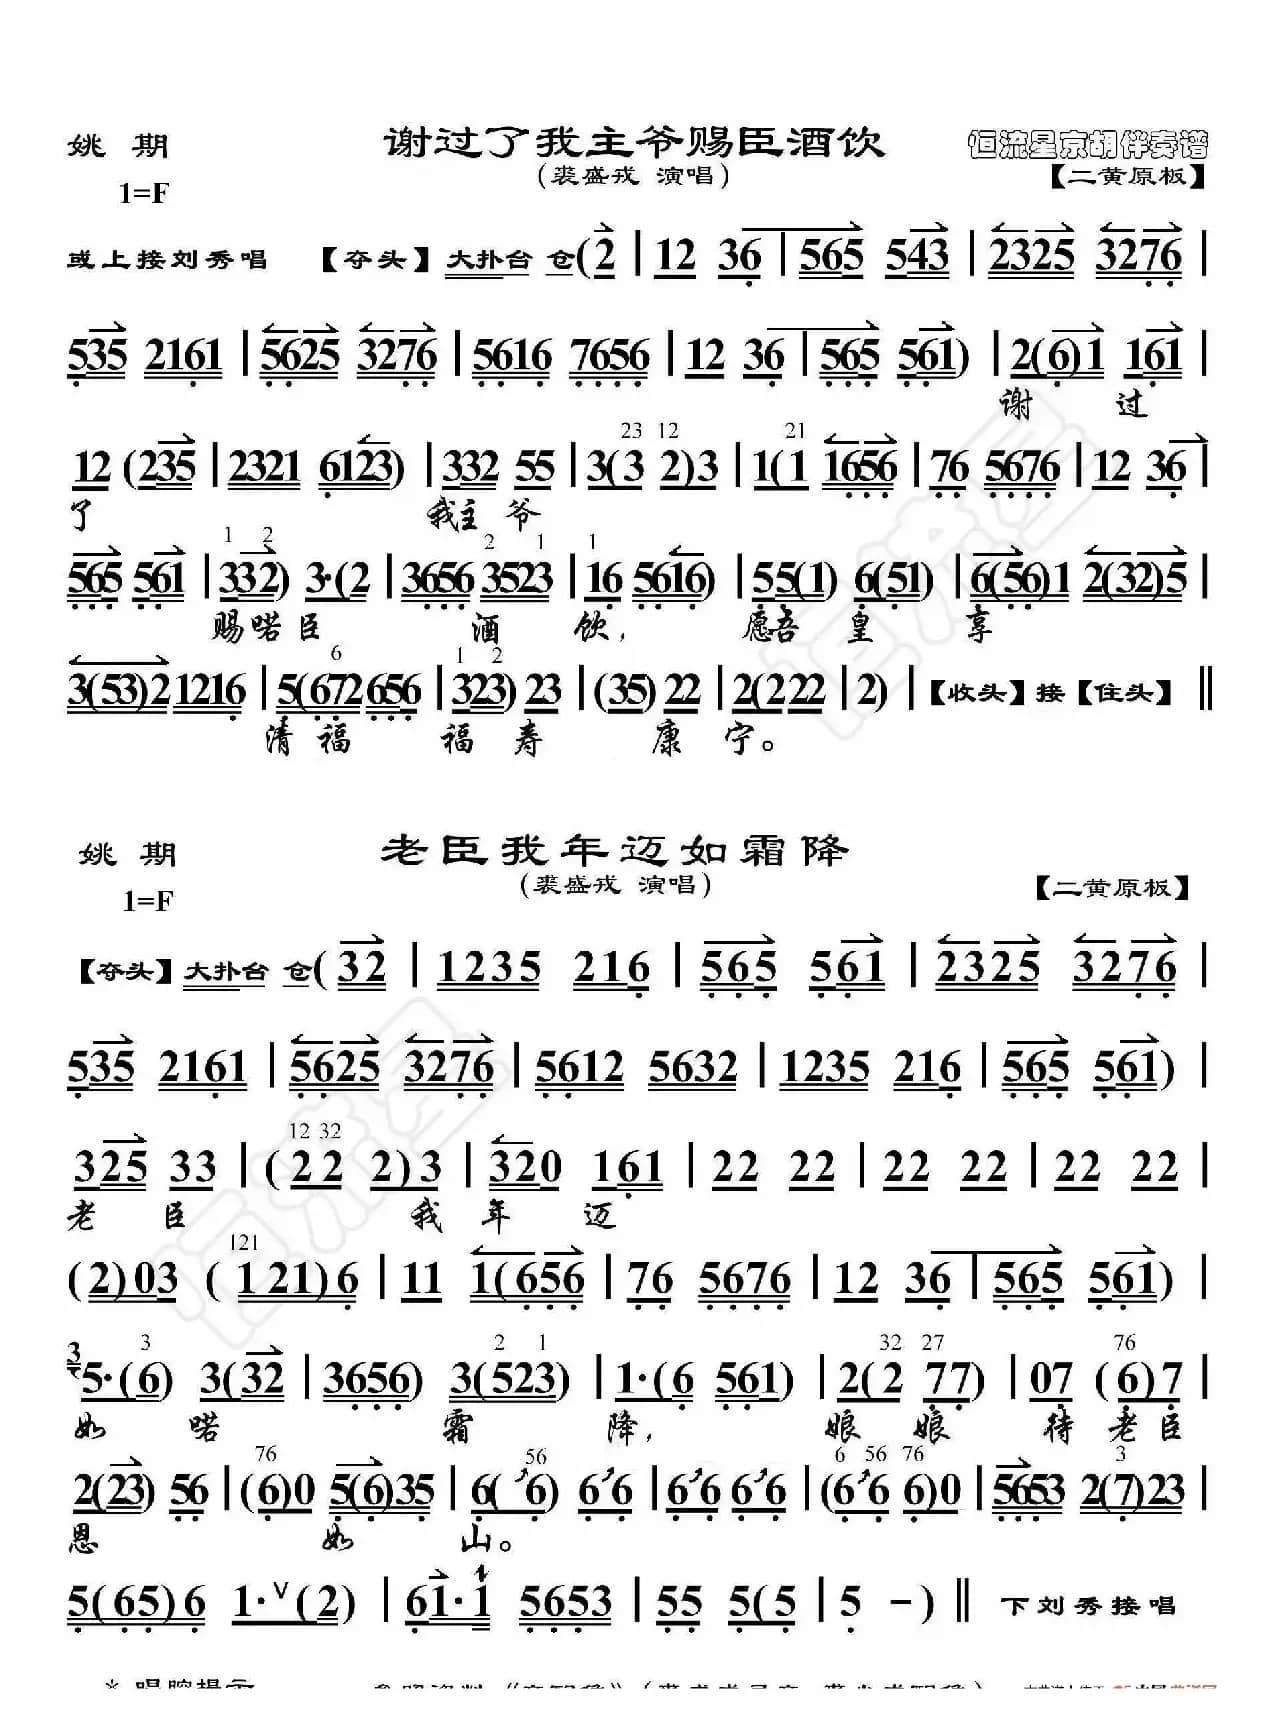 姚 期 谢过了我主爷赐臣酒饮 恒流星京胡伴奏谱
1=F (裘盛戎 演唱) 【二黄原板】
或上接刘秀唱 【夺头】大扑台 仓(2 | 12 36 | 565 543 | 2325 3276 |
535 2161 | 5625 3276 | 5616 7656 | 12 36 | 565 561) | 2(6)1 161 |
谢 过
23 12 21
12 (235 | 2321 6123) | 332 55 | 3(3 2)3 | 1(1 1656 | 76 5676 | 12 36 |
了 我主 爷
1 2 2 1 1
565 561 | 332) 3·(2 | 3656 3523 | 16 5616) | 55(1) 6(51) | 6(56)1 2(32)5 |
赐喏臣 酒 饮, 愿吾 皇 享
6 1 2
3(53)2 1216 | 5(672 656 | 323) 23 | (35) 22 | 2(222 | 2) | 【收头】接【住头】 ‖
清福 福 寿 康 宁。
姚 期 老臣我年迈如霜降
1=F (裘盛戎 演唱) 【二黄原板】
【夺头】大扑台 仓(32 | 1235 216 | 565 561 | 2325 3276 |
535 2161 | 5625 3276 | 5612 5632 | 1235 216 | 565 561) |
12 32
325 33 | (22 2)3 | 320 161 | 22 22 | 22 22 | 22 22 |
老 臣 我 年 迈
121
(2)03 (121)6 | 11 1(656 | 76 5676 | 12 36 | 565 561) |
3 3 2 1 32 27 76
5·(6) 3(32 | 3656) 3(523) | 1·(6 561) | 2(2 77) | 07 (6)7 |
如 喏 霜 降, 娘 娘 待 老臣
76 56 6 56 76 3
2(23) 56 | (6)0 5(6)35 | 6( 6) 66 | 66 66 | (66 6)0 | 5653 2(7)23 |
恩 如 山。
5(65)6 1·∨(2) | 61·1 5653 | 55 5(5 | 5 -) ‖ 下刘秀接唱